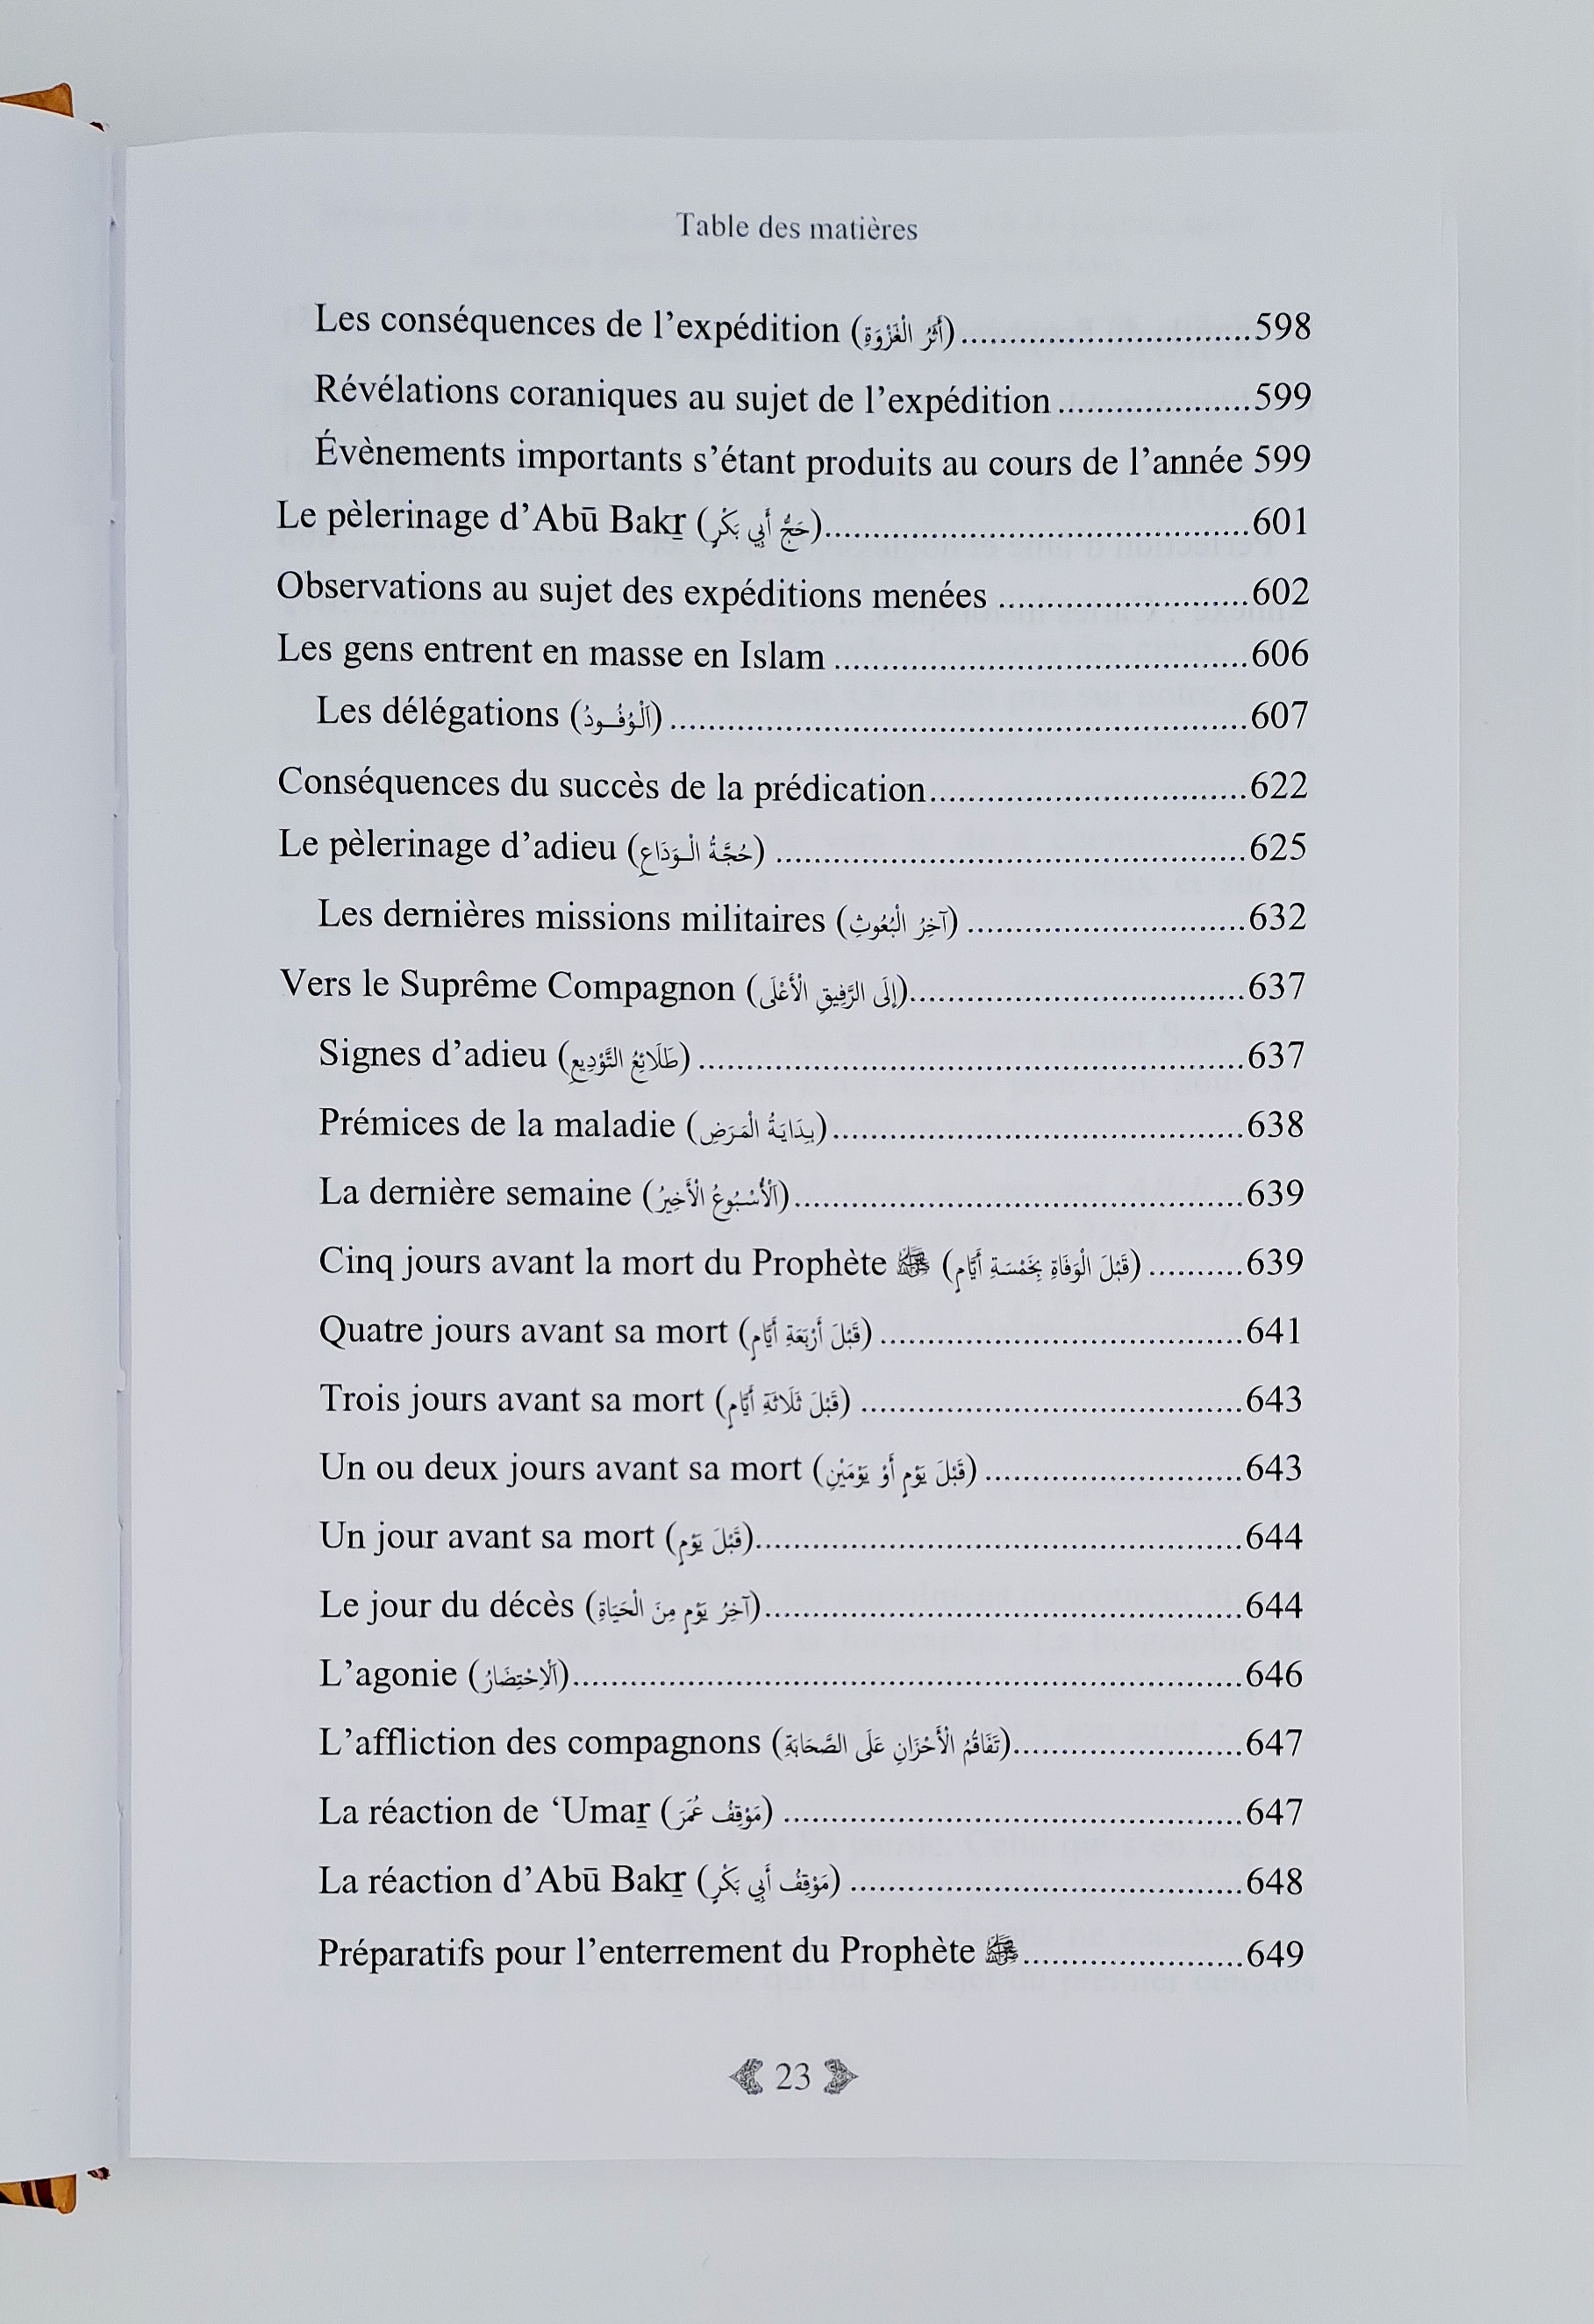 Table des matières
Les conséquences de l’expédition (أَثَرُ الْغَزْوَةِ)..............................598
Révélations coraniques au sujet de l’expédition....................599
Évènements importants s’étant produits au cours de l’année 599
Le pèlerinage d’Abū Bakṟ (حَجُّ أَبِي بَكْرٍ)............................................601
Observations au sujet des expéditions menées ..........................602
Les gens entrent en masse en Islam ...........................................606
Les délégations (اَلْوُفُودُ)............................................................607
Conséquences du succès de la prédication.................................622
Le pèlerinage d’adieu (حُجَّةُ الْوَدَاعِ) .................................................625
Les dernières missions militaires (آخِرُ الْبُعُوثِ) .............................632
Vers le Suprême Compagnon (إِلَى الرَّفِيقِ الْأَعْلَى)...................................637
Signes d’adieu (طَلَائِعُ التَّوْدِيعِ) .........................................................637
Prémices de la maladie (بِدَايَةُ الْمَرَضِ)...........................................638
La dernière semaine (اَلْأُسْبُوعُ الْأَخِيرُ)...............................................639
Cinq jours avant la mort du Prophète ﷺ (قَبْلَ الْوَفَاةِ بِخَمْسَةِ أَيَّامٍ) ..........639
Quatre jours avant sa mort (قَبْلَ أَرْبَعَةِ أَيَّامٍ) ......................................641
Trois jours avant sa mort (قَبْلَ ثَلَاثَةِ أَيَّامٍ) ........................................643
Un ou deux jours avant sa mort (قَبْلَ يَوْمٍ أَوْ يَوْمَيْنِ) ...........................643
Un jour avant sa mort (قَبْلَ يَوْمٍ)...................................................644
Le jour du décès (آخِرُ يَوْمٍ مِنَ الْحَيَاةِ)..................................................644
L’agonie (اَلْاِحْتِضَارُ)......................................................................646
L’affliction des compagnons (تَفَاقُمُ الْأَحْزَانِ عَلَى الصَّحَابَةِ)........................647
La réaction de ‘Umaṟ (مَوْقِفُ عُمَرَ) ................................................647
La réaction d’Abū Bakṟ (مَوْقِفُ أَبِي بَكْرٍ) .........................................648
Préparatifs pour l’enterrement du Prophète ﷺ.......................649
23